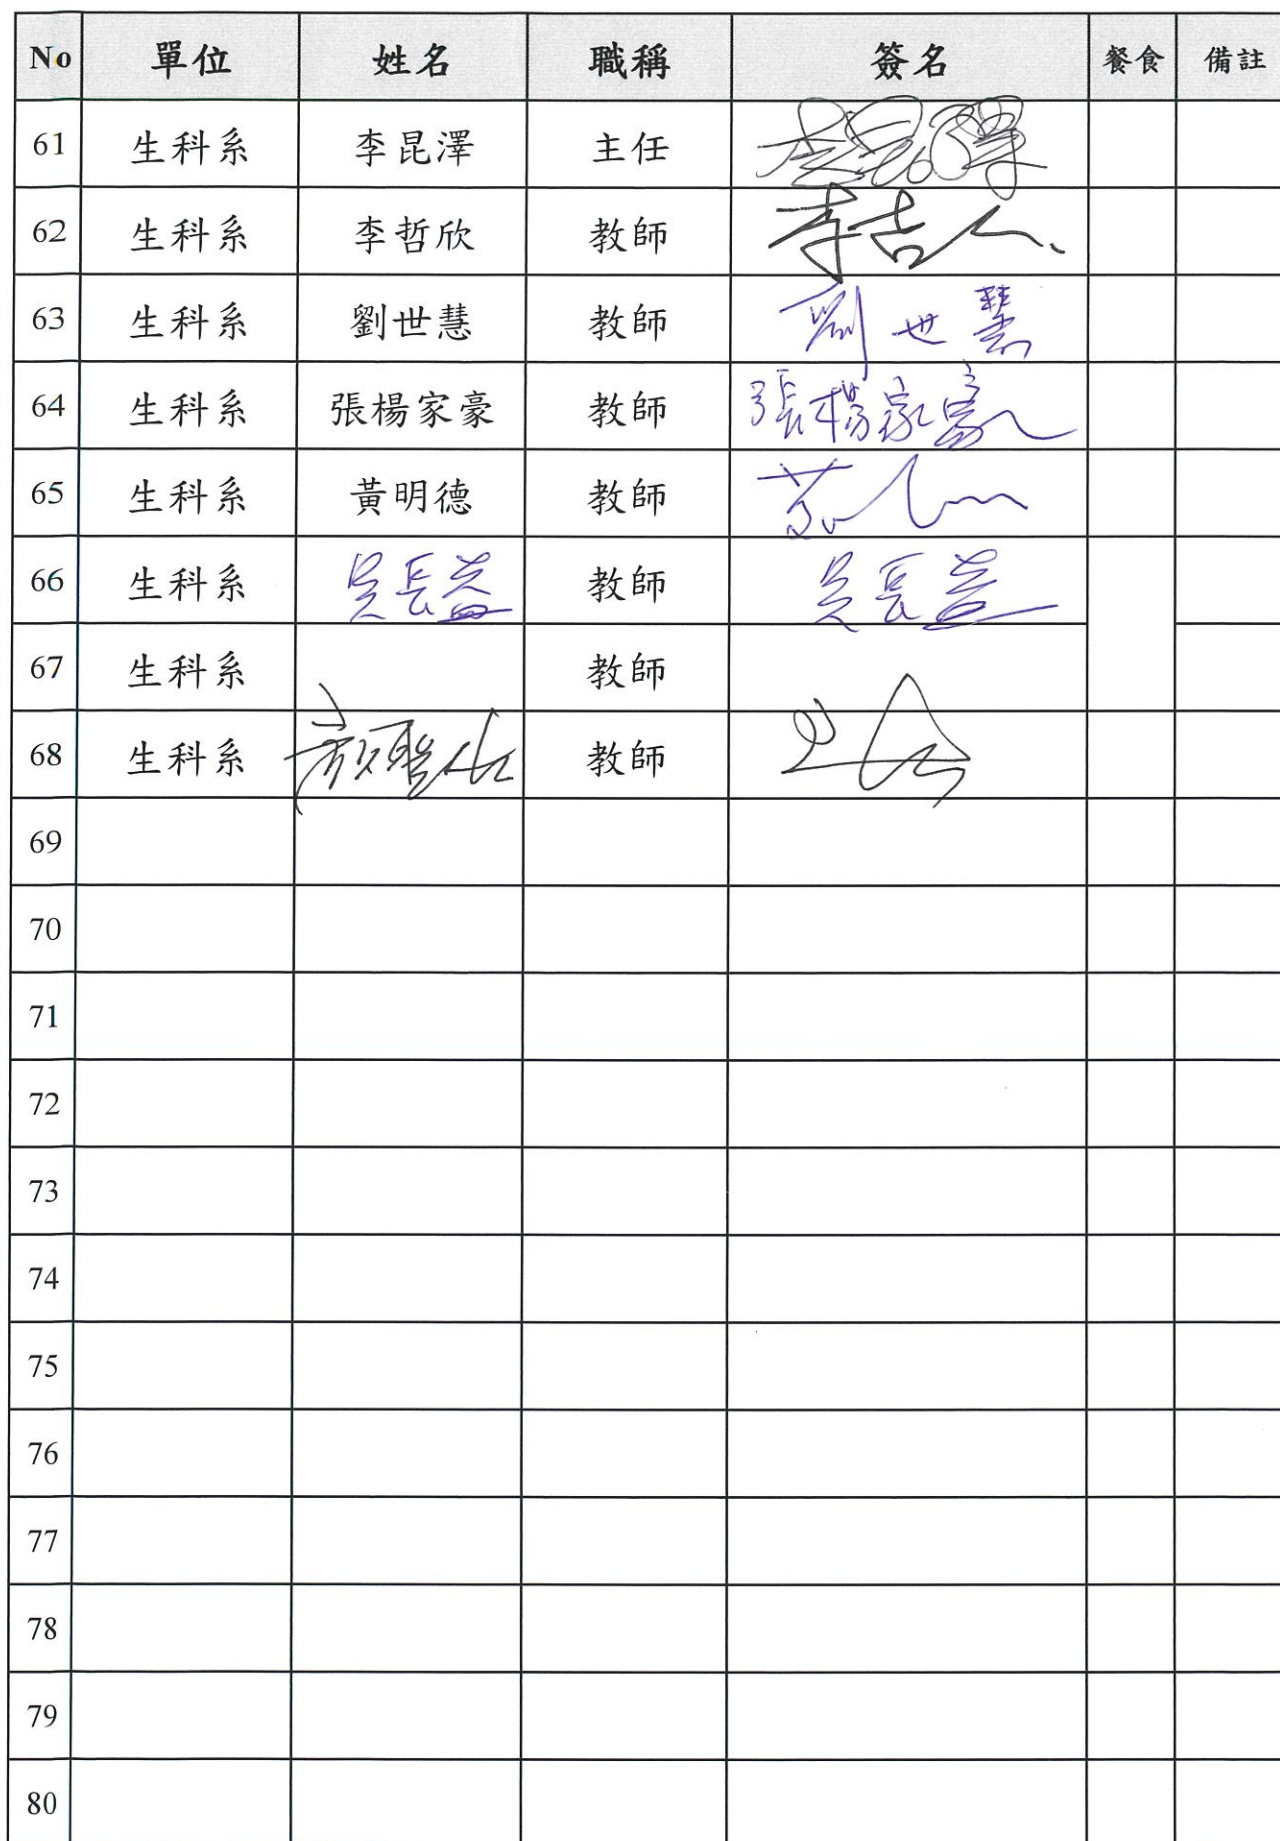 No 單位 姓名 職稱 簽名 餐食 備註
61 生科系 李昆澤 主任 李昆澤
62 生科系 李哲欣 教師 李
63 生科系 劉世慧 教師 劉世慧
64 生科系 張楊家豪 教師 張楊家豪
65 生科系 黃明德 教師 黃
66 生科系 吳長益 教師 吳長益
67 生科系 教師
68 生科系 顏聖紘 教師
69
70
71
72
73
74
75
76
77
78
79
80